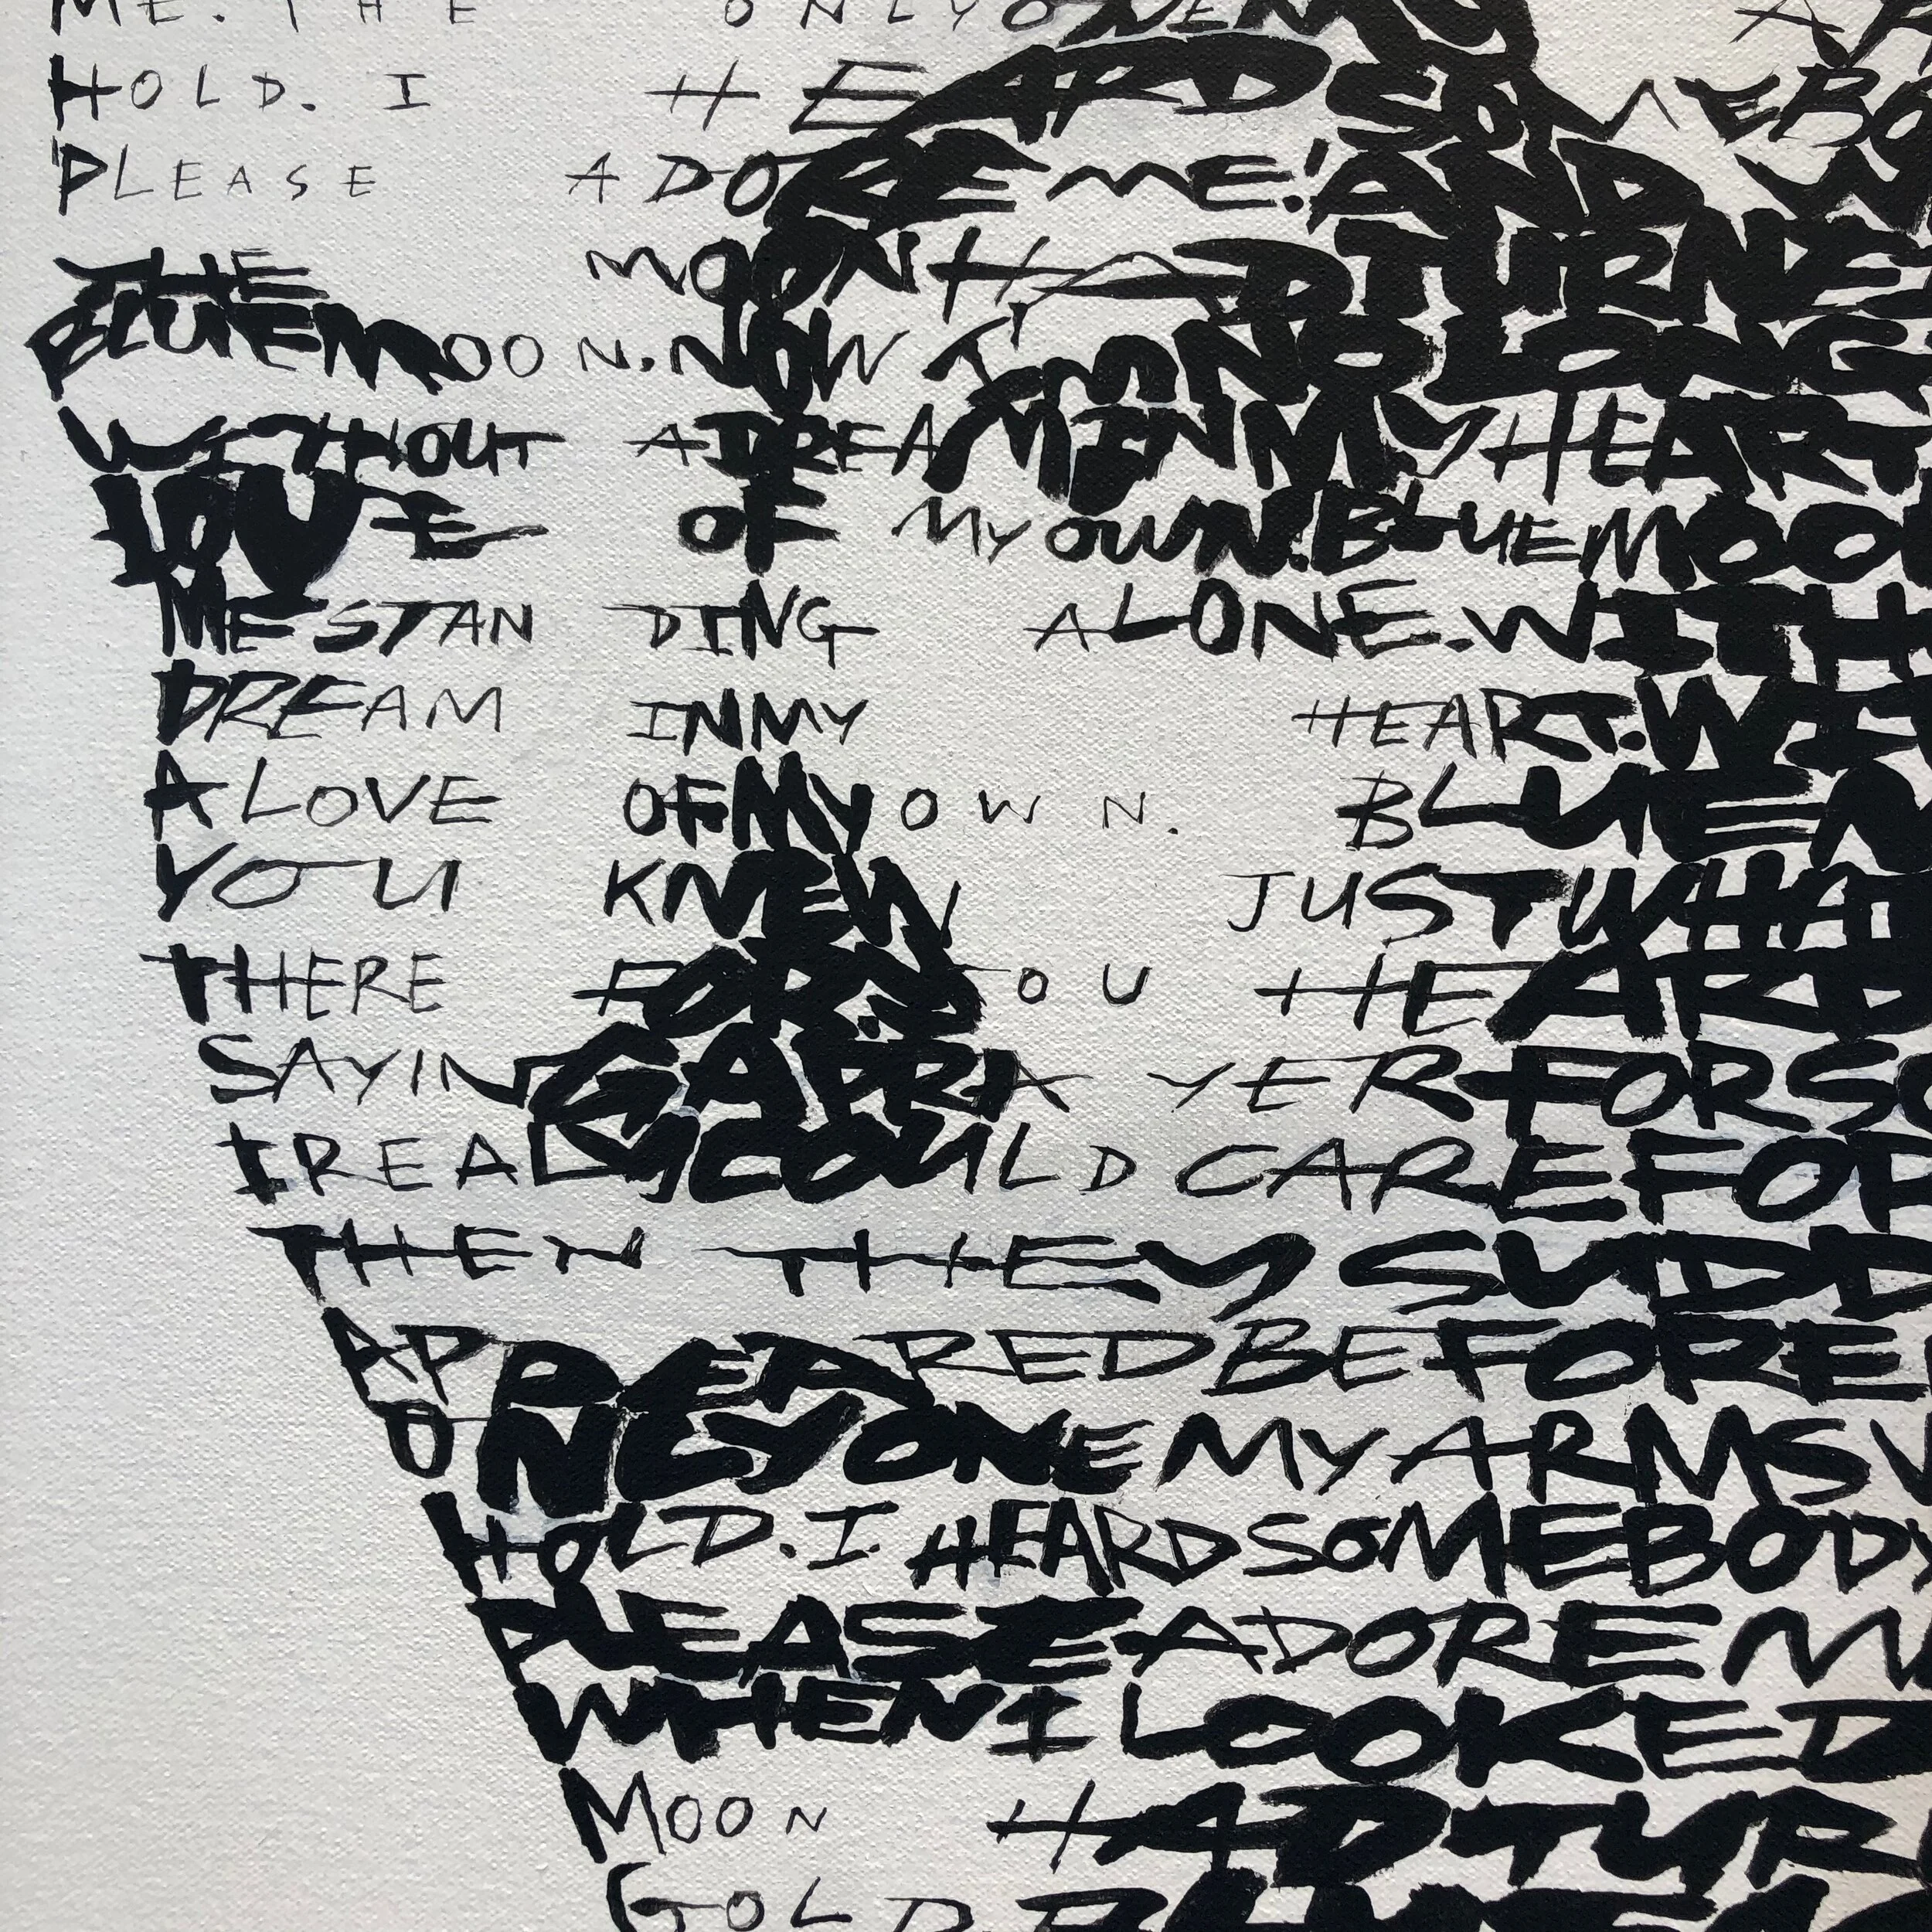 ME. THE ONLY ONE MY
HOLD. I HEARD SOMEBO
PLEASE ADORE ME! AND W
THE MOON HAD TURNE
BLUE MOON. NOW I'M NO LONG
WITHOUT A DREAM IN MY HEART
LOVE OF MY OWN. BLUE MOO
ME STANDING ALONE. WITH
DREAM IN MY HEART. WIT
A LOVE OF MY OWN. BLUE M
YOU KNEW JUST WHAT
THERE FOR. YOU HEARD
SAYING A PRAYER FOR SO
I REALLY COULD CARE FOR
THEN THEY SUDD
APPEARED BEFORE
ONLY ONE MY ARMS W
HOLD. I HEARD SOMEBODY
PLEASE ADORE M
WHEN I LOOKED
MOON HAD TUR
GOLD. BLUE